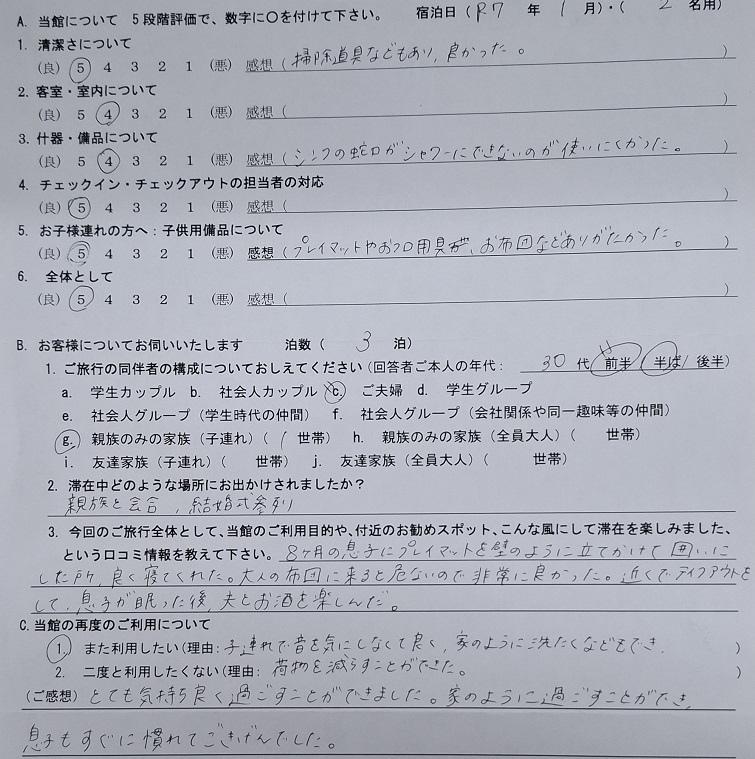 A. 当館について 5段階評価で、数字に○を付けて下さい。 宿泊日(R7 年 1 月)・( 2 名用)
1. 清潔さについて
(良) 5 4 3 2 1 (悪) 感想(掃除道具などもあり、良かった。)
2. 客室・室内について
(良) 5 4 3 2 1 (悪) 感想( )
3. 什器・備品について
(良) 5 4 3 2 1 (悪) 感想(シンクの蛇口がシャワーにできないのが使いにくかった。)
4. チェックイン・チェックアウトの担当者の対応
(良) 5 4 3 2 1 (悪) 感想( )
5. お子様連れの方へ:子供用備品について
(良) 5 4 3 2 1 (悪) 感想(プレイマットやおフロ用具、お布団などありがたかった。)
6. 全体として
(良) 5 4 3 2 1 (悪) 感想( )
B. お客様についてお伺いいたします 泊数( 3 泊)
1. ご旅行の同伴者の構成についておしえてください(回答者ご本人の年代: 30 代 前半/半ば/後半)
a. 学生カップル b. 社会人カップル c. ご夫婦 d. 学生グループ
e. 社会人グループ(学生時代の仲間) f. 社会人グループ(会社関係や同一趣味等の仲間)
g. 親族のみの家族(子連れ)( 1 世帯) h. 親族のみの家族(全員大人)( 世帯)
i. 友達家族(子連れ)( 世帯) j. 友達家族(全員大人)( 世帯)
2. 滞在中どのような場所にお出かけされましたか?
親族と会合、結婚式参列
3. 今回のご旅行全体として、当館のご利用目的や、付近のお勧めスポット、こんな風にして滞在を楽しみました、
という口コミ情報を教えて下さい。8ヶ月の息子にプレイマットを壁のように立てかけて囲いに
した所、良く寝てくれた。大人の布団に来ると危ないので非常に良かった。近くでテイクアウトを
して、息子が眠った後、夫とお酒を楽しんだ。
C. 当館の再度のご利用について
1. また利用したい(理由:子連れで音を気にしなくて良く、家のように洗たくなどもでき、)
2. 二度と利用したくない(理由: 荷物を減らすことができた。)
(ご感想)とても気持ち良く過ごすことができました。家のように過ごすことができ、
息子もすぐに慣れてごきげんでした。